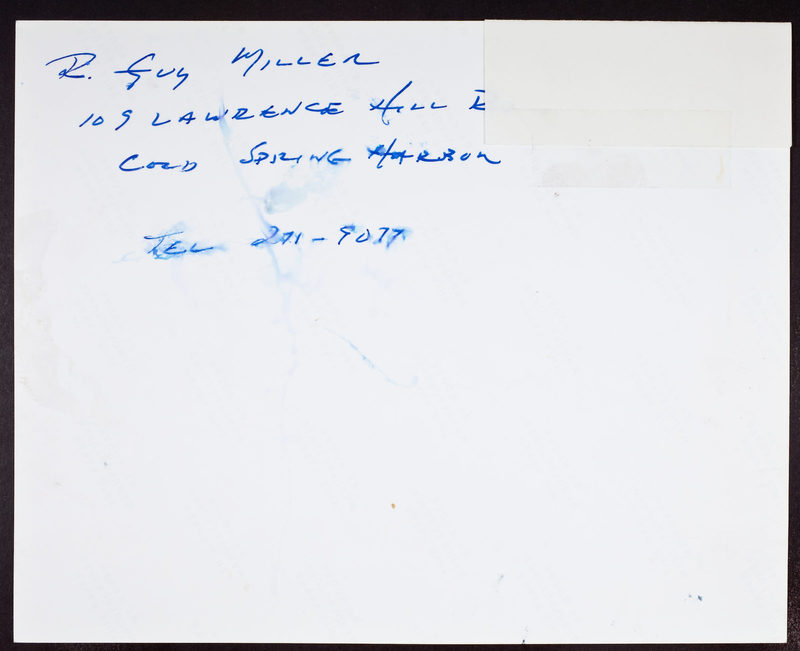 R. Guy MILLER
109 LAWRENCE HILL
COLD SPRING HARBOR
TEL 271-9077